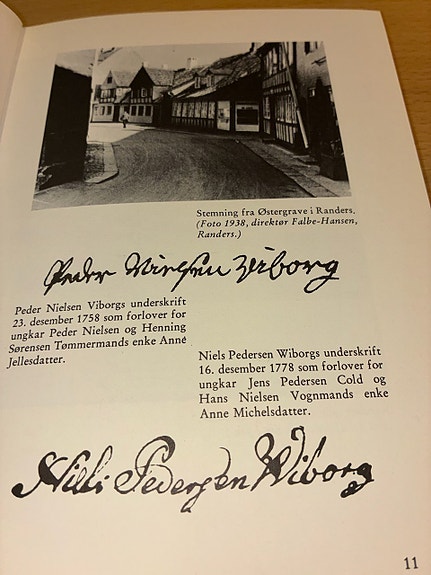 Stemning fra Østergrave i Randers.
(Foto 1938, direktør Falbe-Hansen,
Randers.)
Peder Nielsen Viborg
Peder Nielsen Viborgs underskrift
23. desember 1758 som forlover for
ungkar Peder Nielsen og Henning
Sørensen Tømmermands enke Anne
Jellesdatter.
Niels Pedersen Wiborgs underskrift
16. desember 1778 som forlover for
ungkar Jens Pedersen Cold og
Hans Nielsen Vognmands enke
Anne Michelsdatter.
Niels Pedersen Wiborg
11